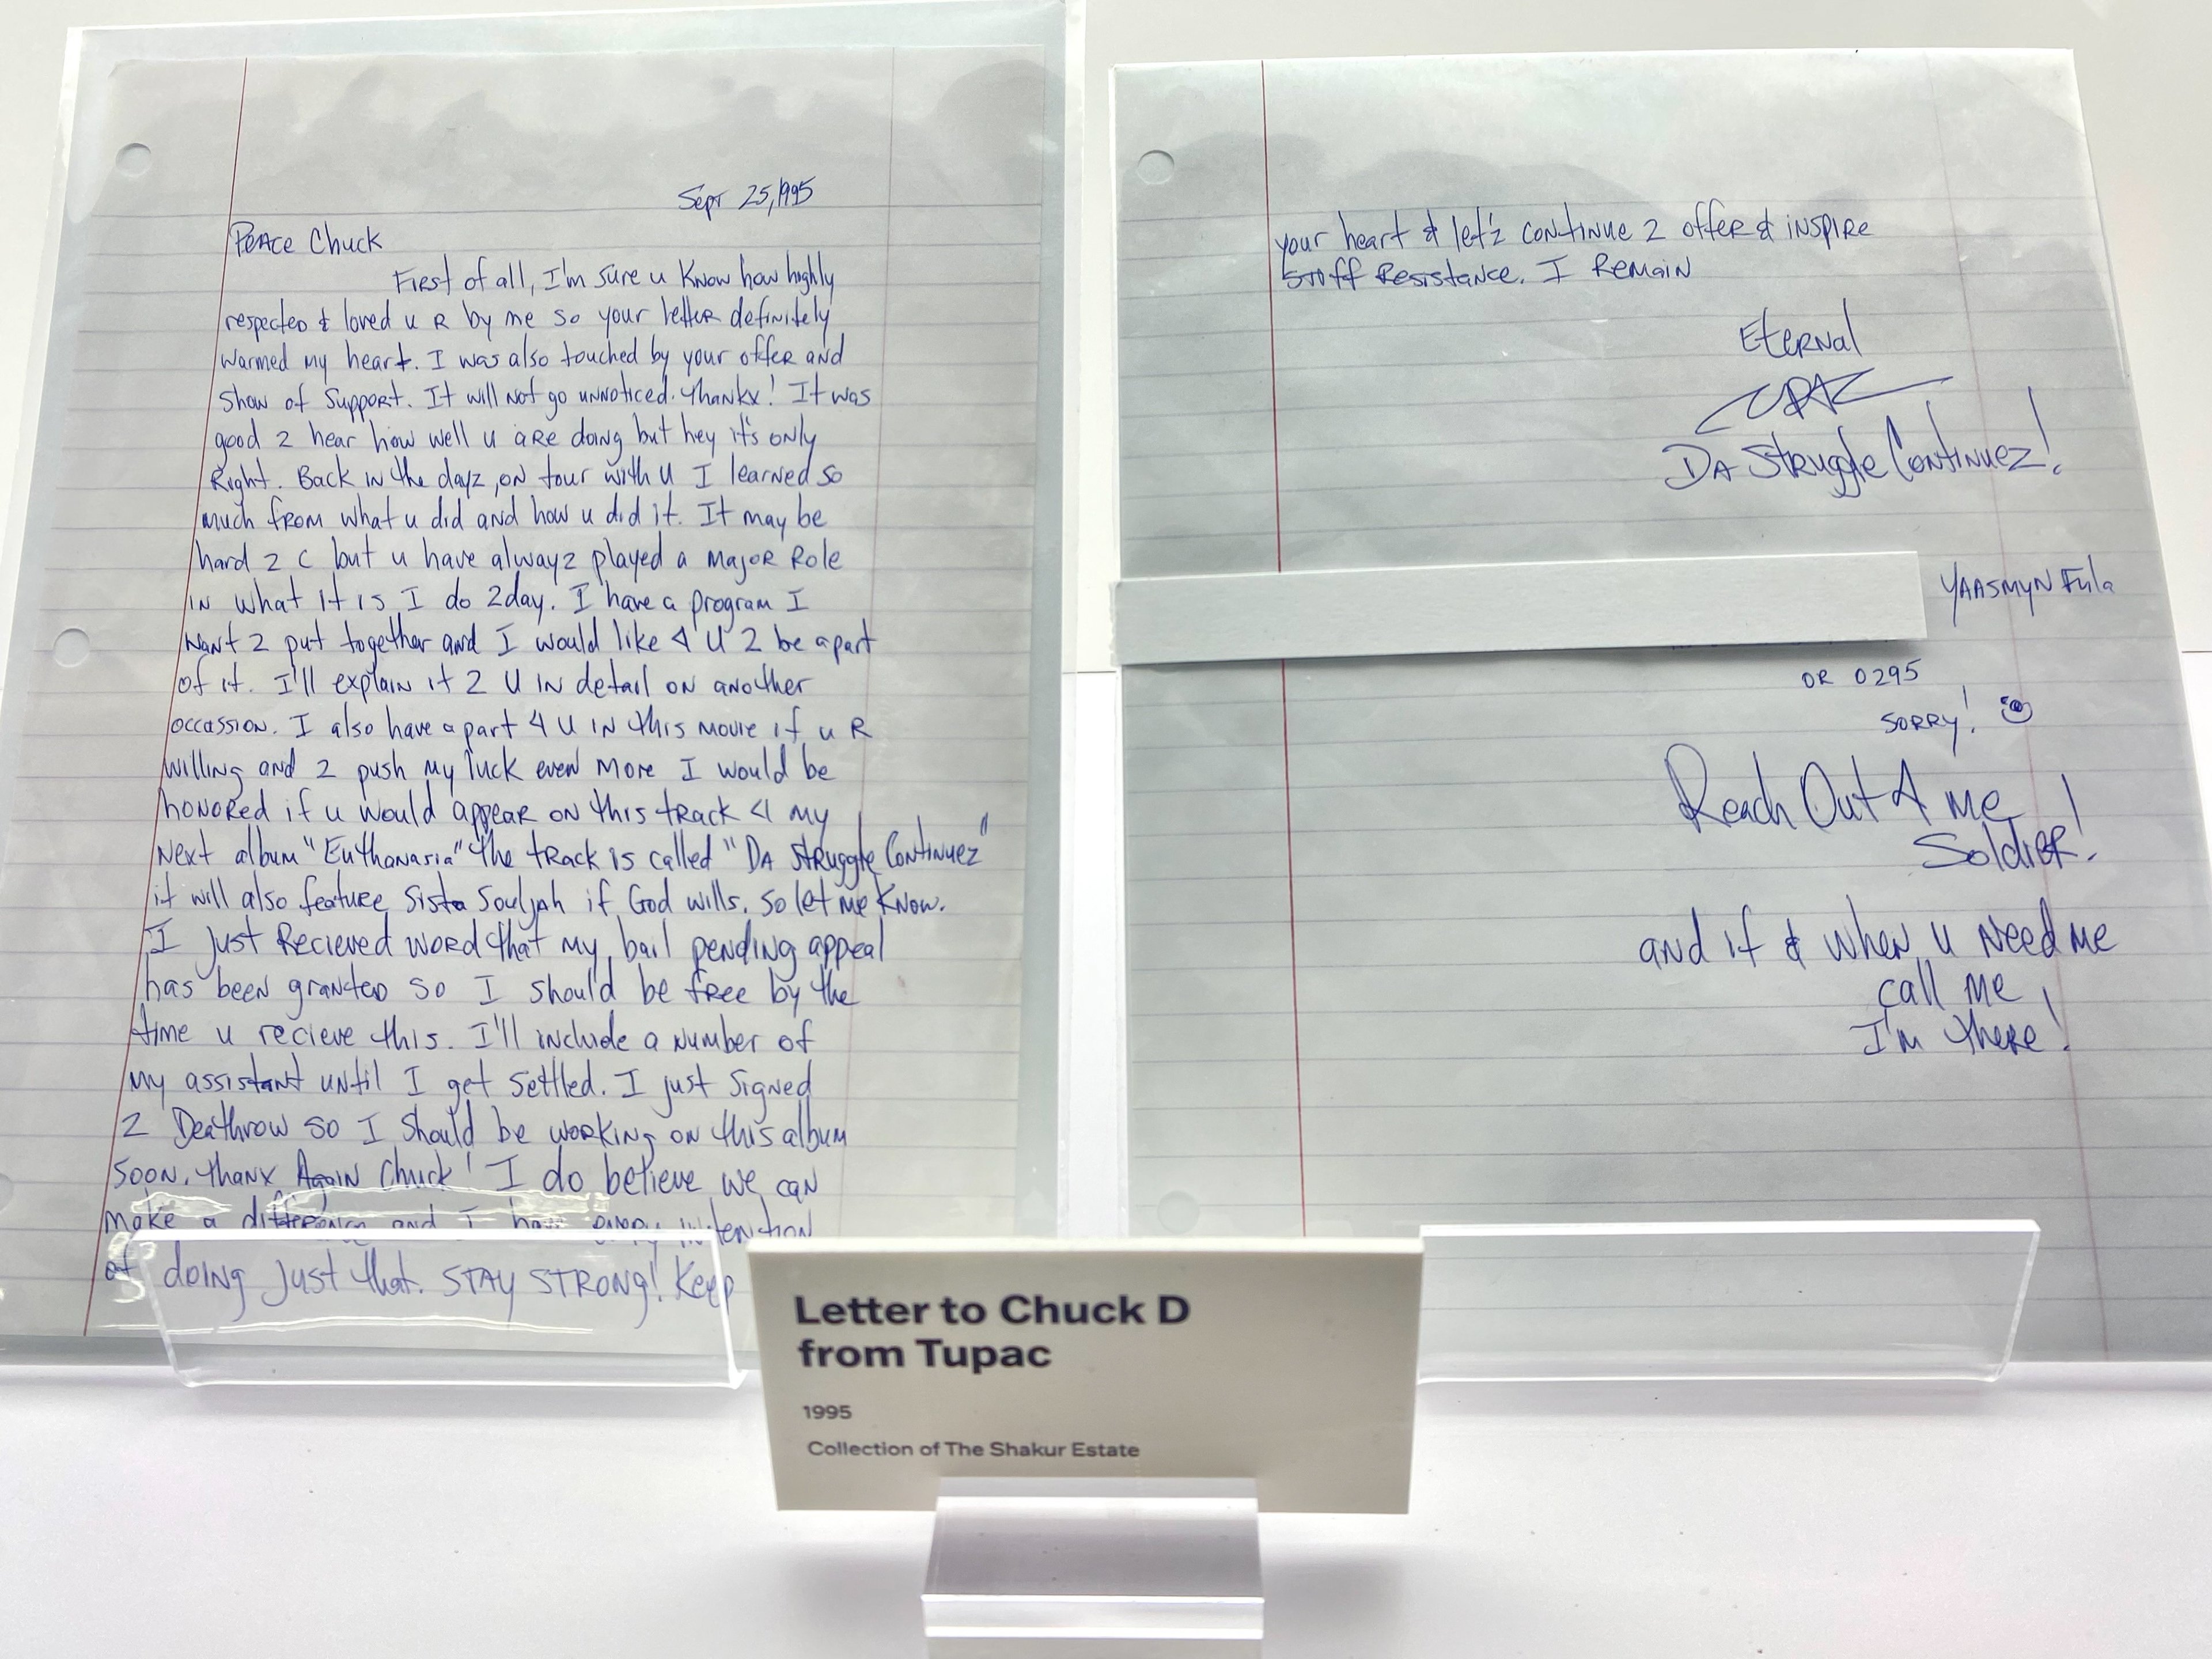 Sept 25, 1995
Peace Chuck
First of all, I'm sure u know how highly
respected & loved u R by me so your letter definitely
warmed my heart. I was also touched by your offer and
show of support. It will not go unnoticed. Thankx! It was
good 2 hear how well u are doing but hey it's only
Right. Back in the dayz, on tour with U I learned so
much from what u did and how u did it. It may be
hard 2 C but u have alwayz played a major Role
in what it is I do 2day. I have a program I
want 2 put together and I would like 4 U 2 be apart
of it. I'll explain it 2 U in detail on another
occassion. I also have a part 4 U in this movie if u R
willing and 2 push my luck even more I would be
honored if u would appear on this track 4 my
next album "Euthanasia" the track is called "Da Struggle Continuez"
it will also feature Sista Souljah if God wills. So let me know.
I just Recieved word that my bail pending appeal
has been granted so I should be free by the
time u recieve this. I'll include a number of
my assistant until I get settled. I just signed
2 Deathrow so I should be working on this album
soon. Thanx Again Chuck! I do believe we can
make a difference and I have every intention
of doing just that. STAY STRONG! Keep
your heart & let'z continue 2 offer & inspire
Resistance. I Remain
Eternal
Da Struggle Continuez!
Yaasmyn Fula
OR 0295
SORRY!
Reach Out 4 me
Soldier!
and if & when u need me
call me
I'm there!
Letter to Chuck D
from Tupac
1995
Collection of The Shakur Estate